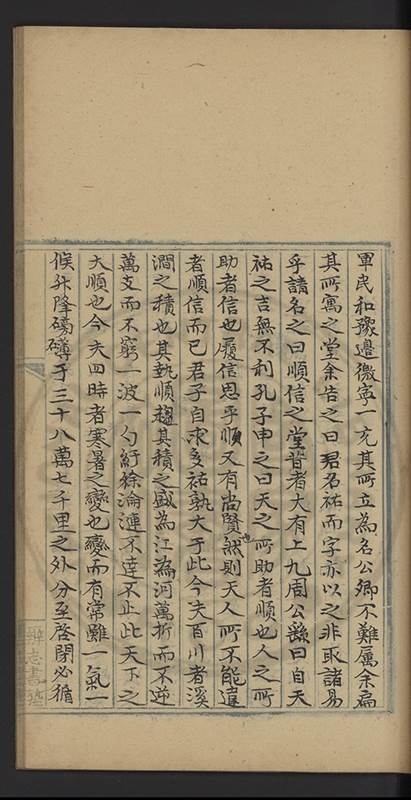 軍民和豫邉徼寧一充其所立為名公卿不難屬余扁
其所寓之堂余告之曰君名祐而字亦以之非取諸易
乎請名之曰順信之堂昔者大有上九周公繇曰自天
祐之吉無不利孔子申之曰天之所助者順也人之所
助者信也履信思乎順又有尚賢也然則天人所不能違
者順信而已君子自求多祐孰大于此今夫百川者溪
澗之積也其執順趨其積之盛為江為河萬折而不逆
萬支而不窮一波一勺紆徐淪漣不達不止此天下之
大順也今夫四時者寒暑之變也變而有常雖一氣一
候升降磅礴于三十八萬七千里之外分至啓閉必循
辨志書塾